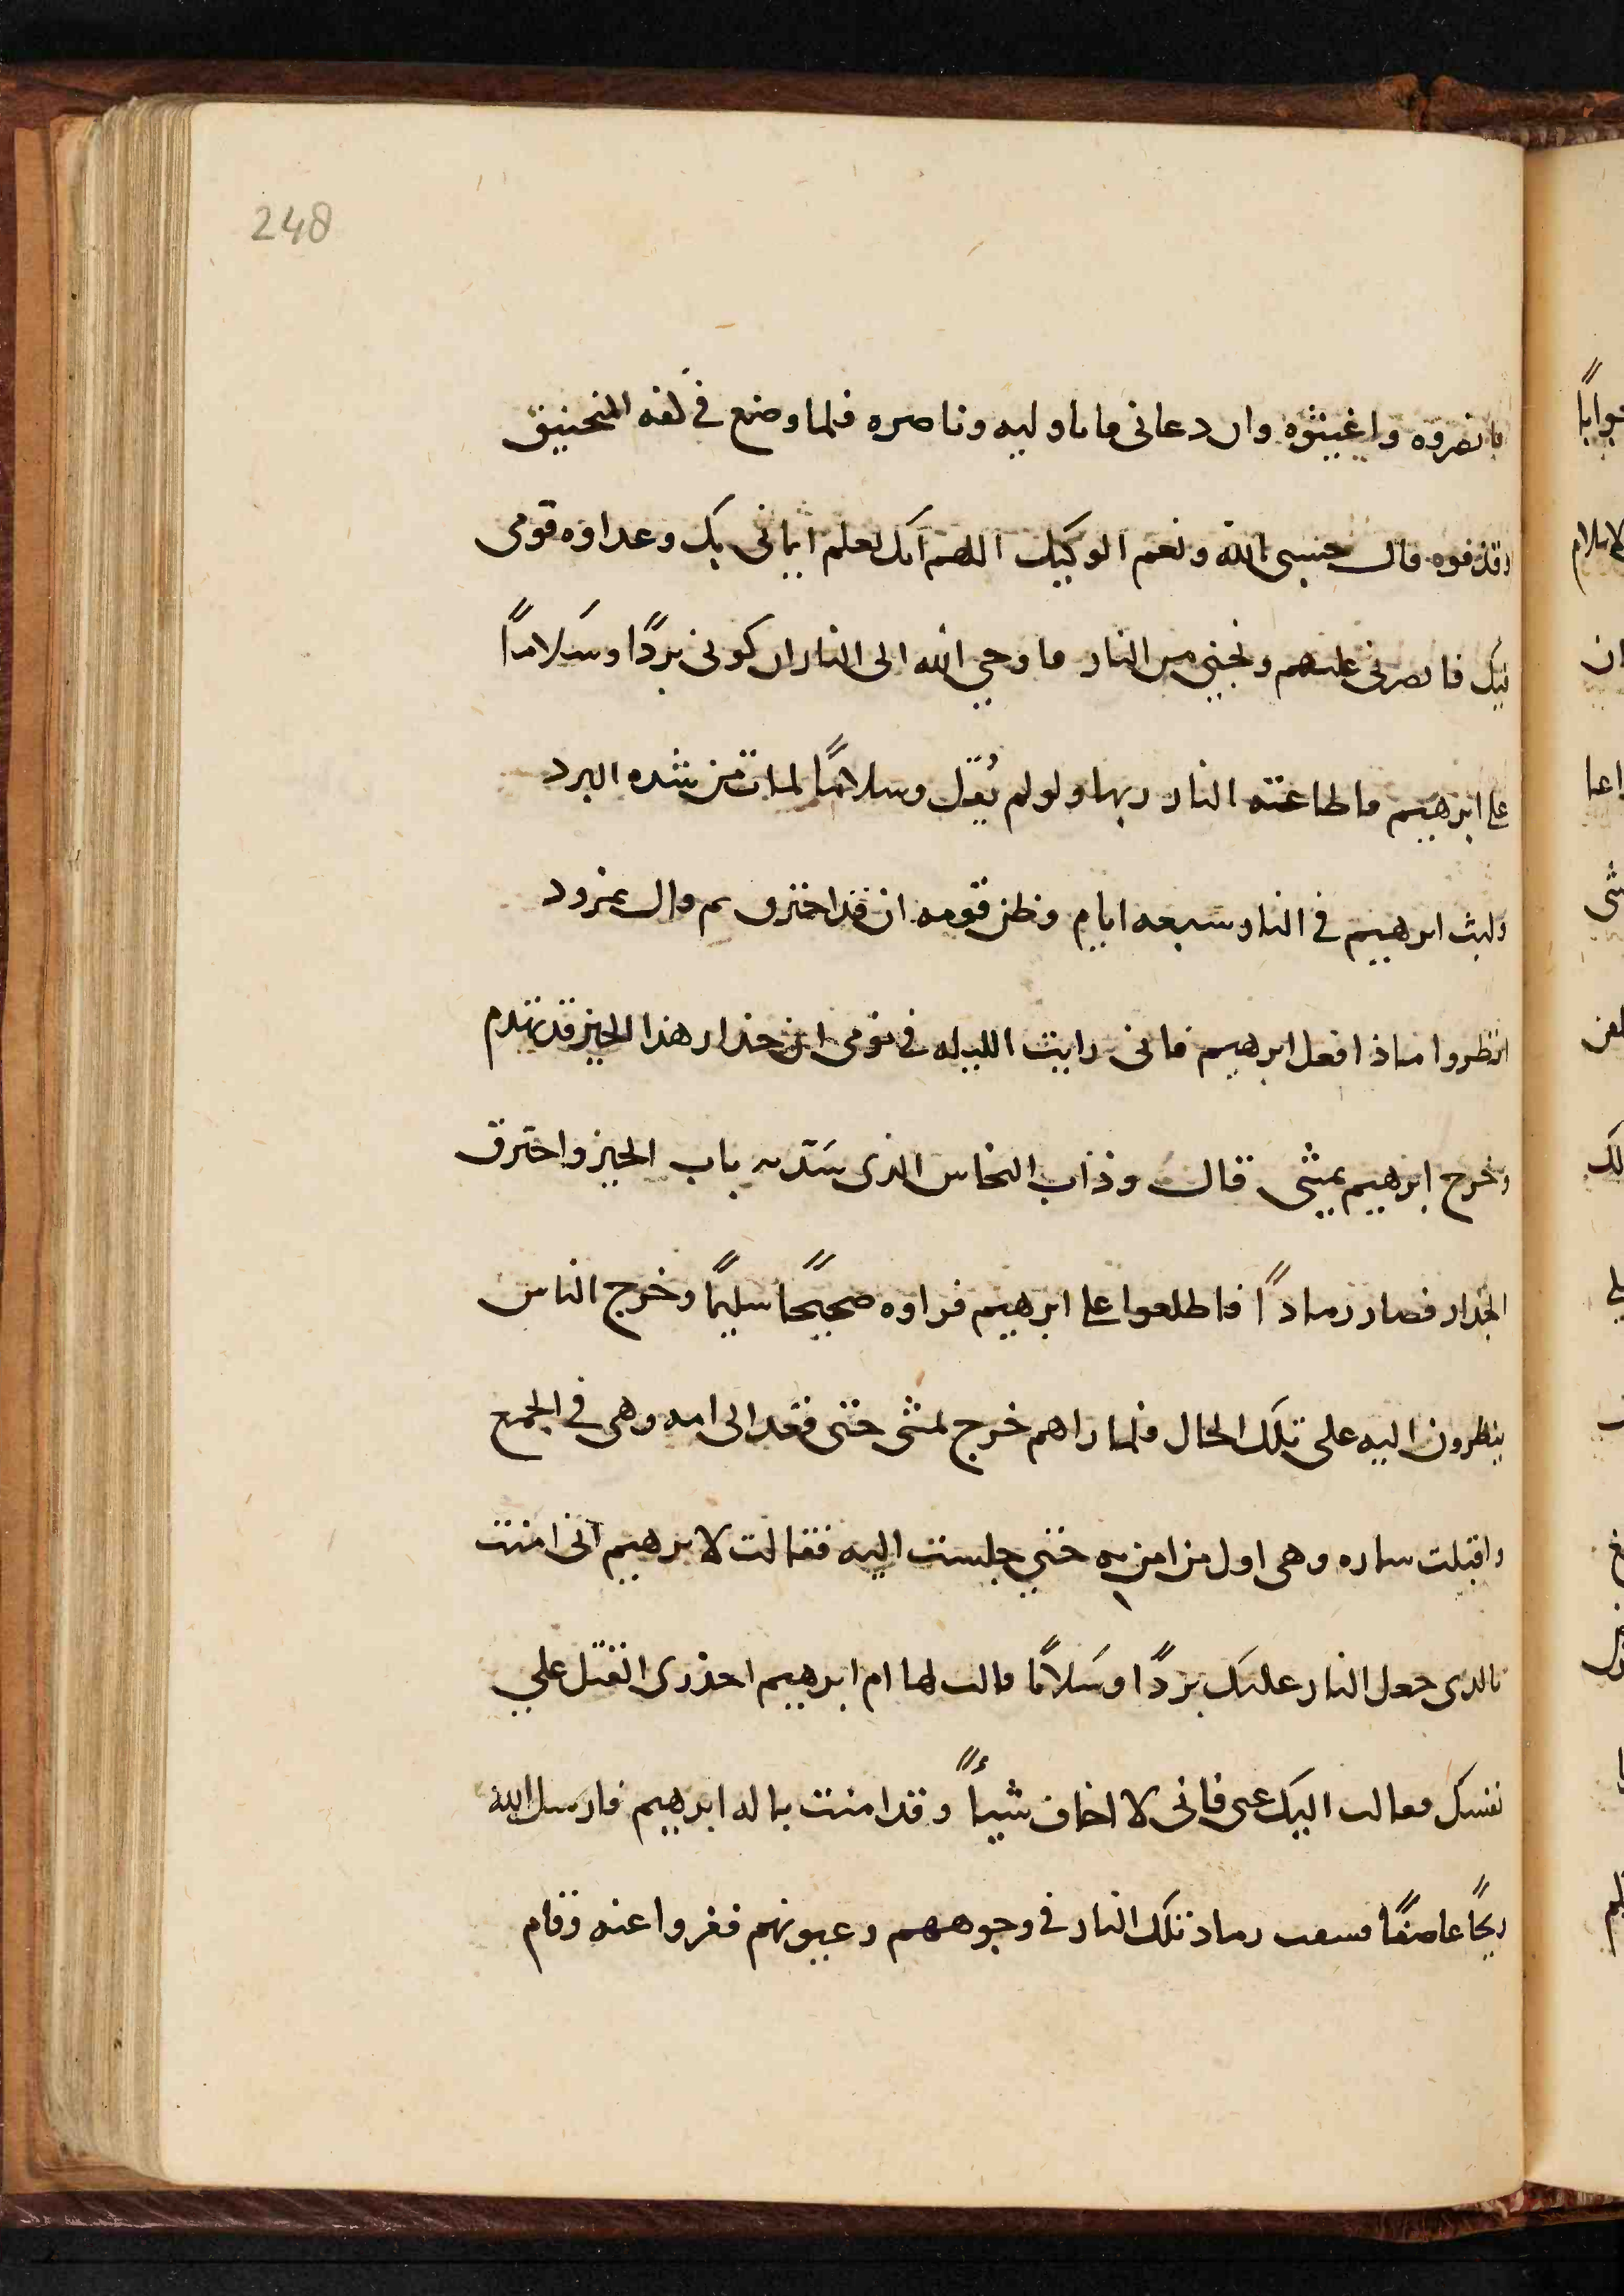 248
فانصروه واغيثوه وان دعانى فانا وليه وناصره فلما وضع فى كفه المنجنيق
وقذفوه قال حسبى الله ونعم الوكيل اللهم انك تعلم ايمانى بك وعداوه قومى
فيك فانصرنى عليهم ونجنى من النار فاوحي الله الى النار ان كونى بردًا وسلامًا
على ابرهيم فاطاعته النار ربها ولو لم يُقل وسلامًا لمات من شده البرد
ولبث ابرهيم فى النار سبعه ايام وظن قومه ان قد احترق ثم قال نمرود
انظروا ماذا فعل ابرهيم فانى رايت الليله فى نومى ان جدار هذا الحيز قد تهدم
وخرج ابرهيم يمشى قال وذاب النحاس الذى سد به باب الحيز واحترق
الجدار فصار رمادًا فاطلعوا على ابرهيم فراوه صحيحًا سليمًا وخرج الناس
ينظرون اليه على تلك الحال فلما راهم خرج يمشى حتى قعد الى امه وهى فى الجمع
واقبلت ساره وهى اول من امن به حتي جلست اليه فقالت لابرهيم انى امنت
بالذى جعل النار عليك بردًا وسلامًا قالت لها ام ابرهيم احذرى القتل علي
نفسك فقالت اليك عنى فانى لا اخاف شيئًا وقد امنت باله ابرهيم فارسل الله
ريحًا عاصفًا فسفت رماد تلك النار فى وجوههم وعيونهم ففروا عنه وقام